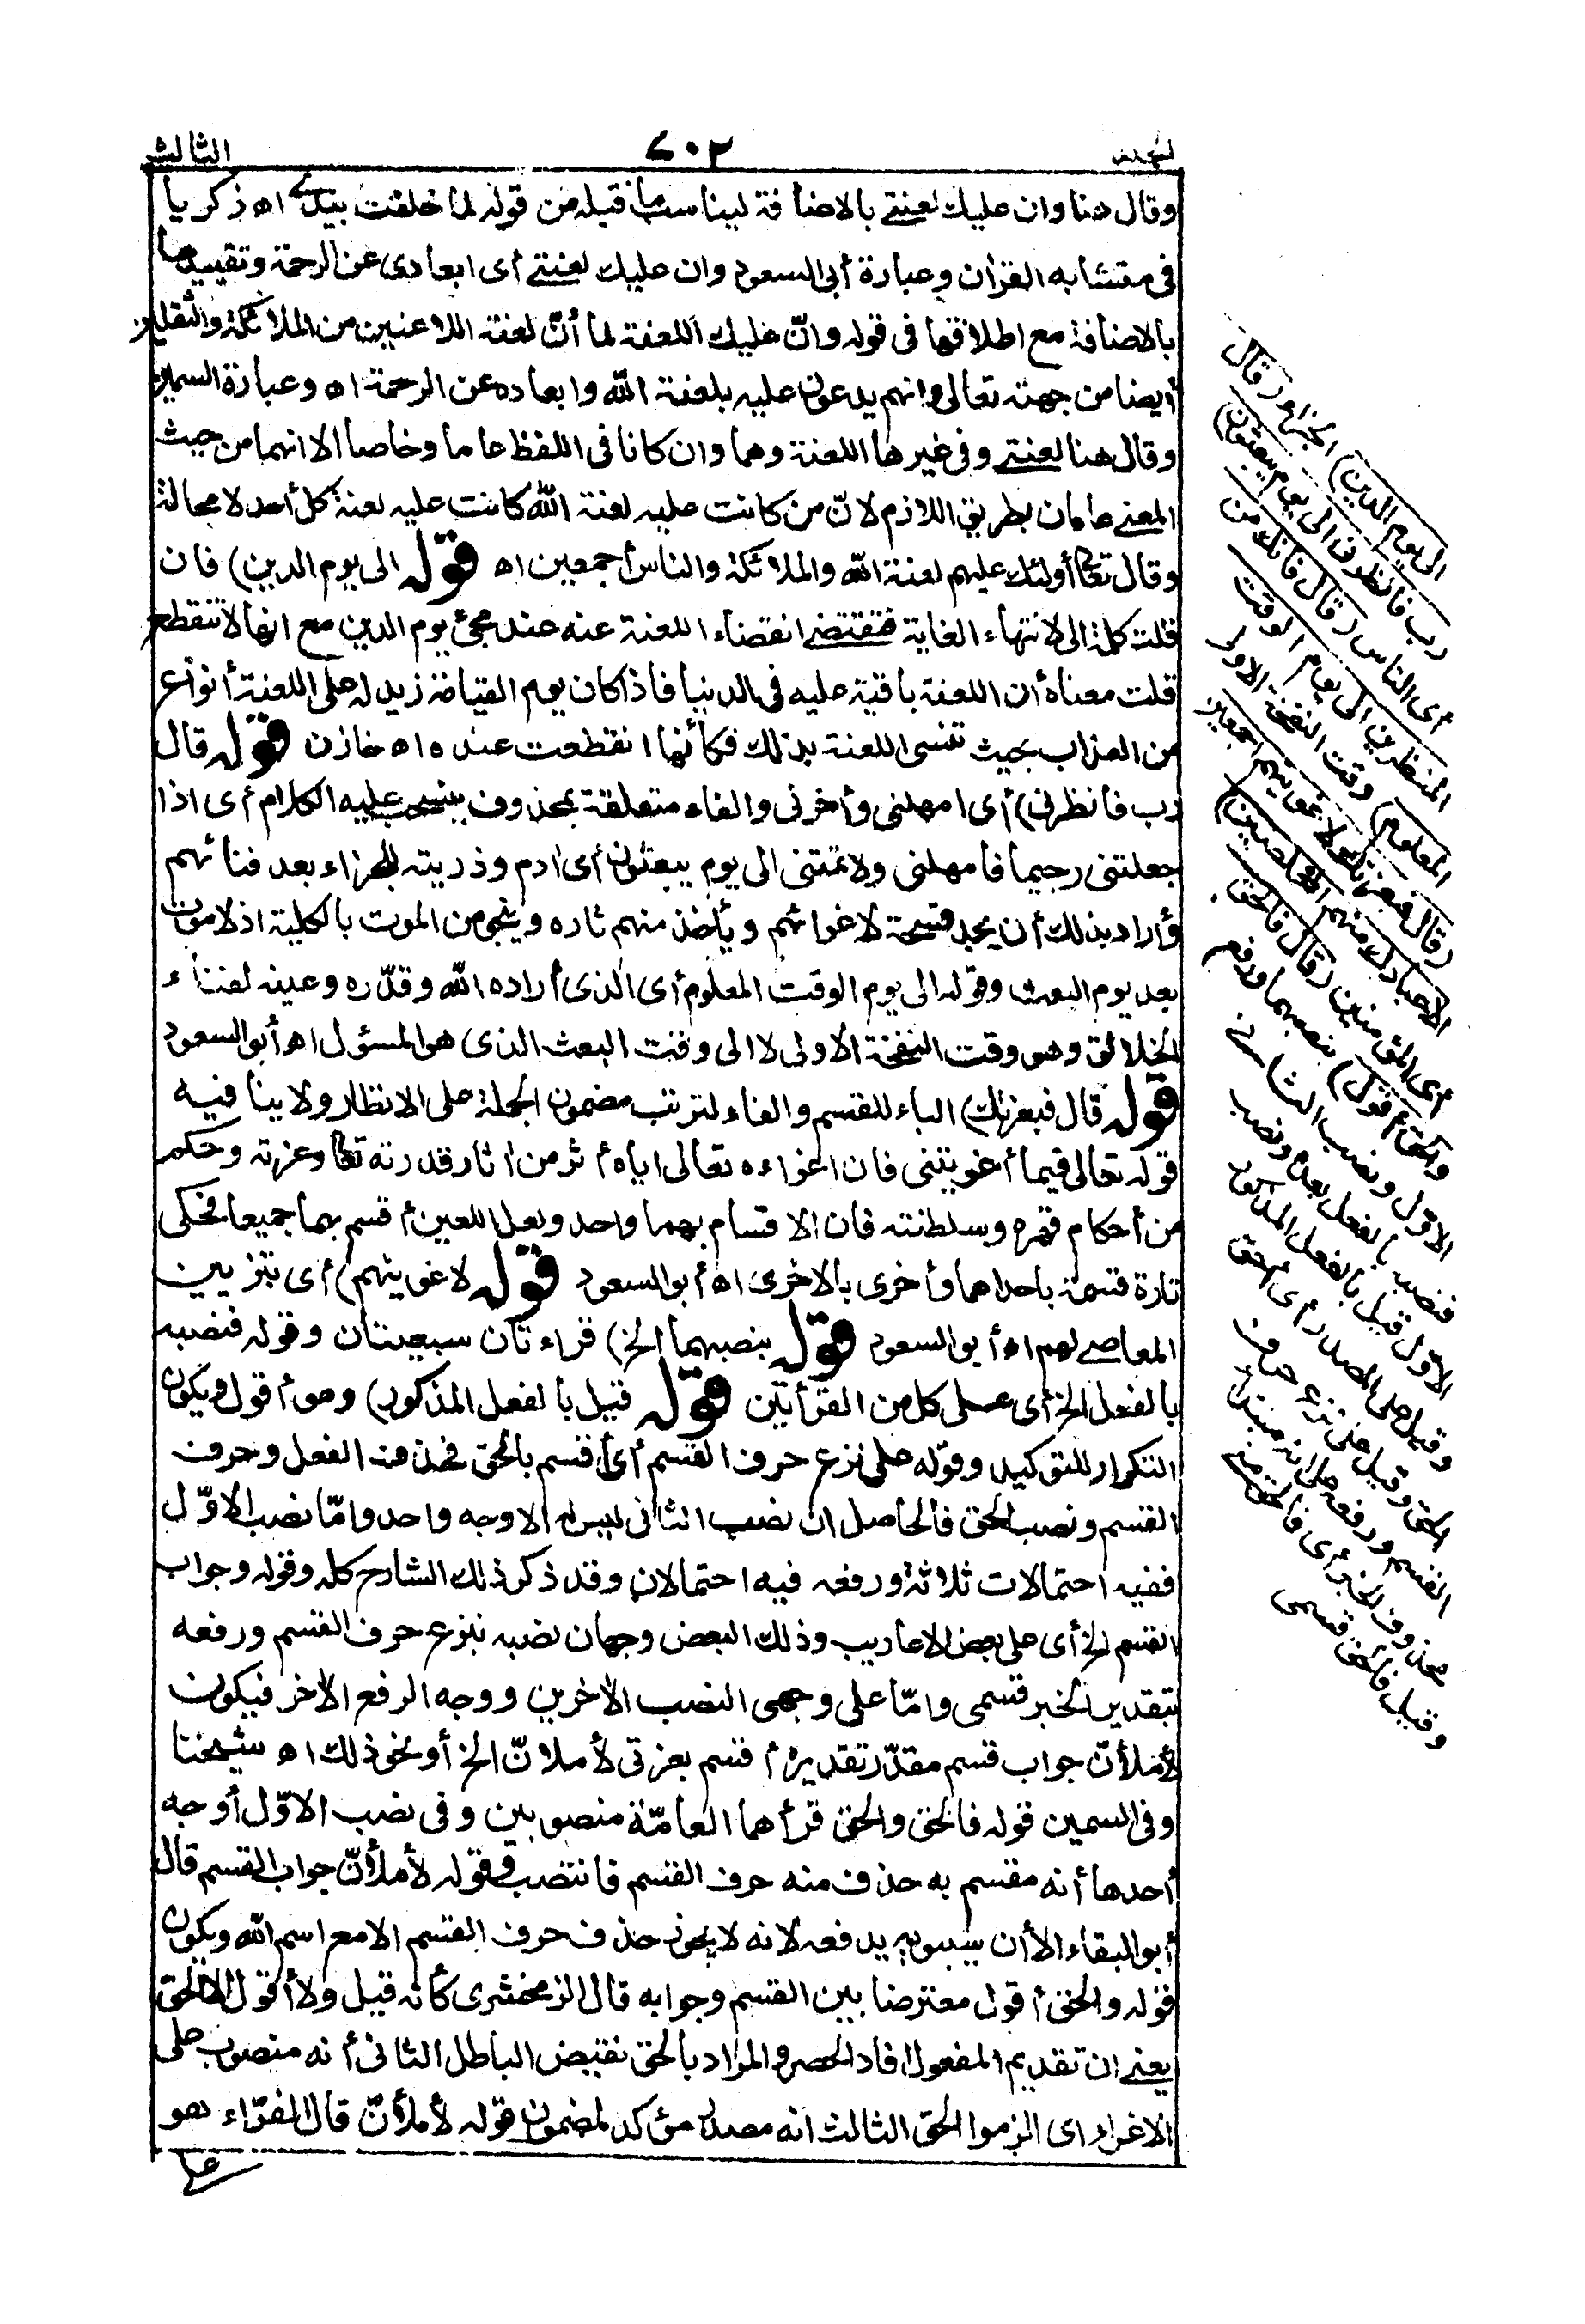 الثالث
٧٠٢
المجلد
وقال هنا وان عليك لعنتي بالاضافة ليناسب ما قبله من قوله لما خلقت بيدي اه ذكريا
في متشابه القران وعبارة أبي السعود وان عليك لعنتي أى ابعادى عن الرحمة وتقييدها
بالاضافة مع اطلاقها فى قوله وانّ عليك اللعنة لما أنّ لعنة اللاعنين من الملائكة والثقلين
أيضا من جهته تعالى وانهم يدعون عليه بلعنة الله وابعاده عن الرحمة اه وعبارة السمين
وقال هنا لعنتي وفى غيرها اللعنة وهما وان كانا فى اللفظ عاما وخاصا الا انهما من حيث
المعنى عامان بطريق اللازم لانّ من كانت عليه لعنة الله كانت عليه لعنة كل أحد لا محالة
وقال تعالى أولئك عليهم لعنة الله والملائكة والناس أجمعين اه قوله الى يوم الدين) فان
قلت كلمة الى لانتهاء الغاية فتقتضى انقضاء اللعنة عنه عند مجئ يوم الدين مع انها لا تنقطع
قلت معناه أن اللعنة باقية عليه فى الدنيا فاذا كان يوم القيامة زيد له على اللعنة أنواع
من العذاب بحيث تنسى اللعنة بذلك فكأنها انقطعت عنده اه خازن قوله قال
رب فأنظرنى) أى امهلنى وأخرنى والفاء متعلقة بمحذوف ينسحب عليه الكلام أى اذا
جعلتنى رجيما فامهلنى ولا تمتنى الى يوم يبعثون أى ادم وذريته للجزاء بعد فنائهم
وأراد بذلك أن يجد فسحة لاغوائهم ويأخذ منهم ثاره وينجو من الموت بالكلية اذ لا موت
بعد يوم البعث وقوله الى يوم الوقت المعلوم أى الذى أراده الله وقدّره وعينه لفناء
الخلائق وهو وقت النفخة الاولى لا الى وقت البعث الذى هو المسؤل اه أبو السعود
قوله قال فبعزتك) الباء للقسم والفاء لترتب مضمون الجملة على الانظار ولا ينافيه
قوله تعالى فبما أغويتنى فان اغواءه تعالى اياه أثر من اثار قدرته تعالى وعزته وحكم
من أحكام قهره وسلطنته فان الاقسام بهما واحد ولعل اللعين أقسم بهما جميعا فحكى
تارة قسمه باحداهما وأخرى بالاخرى اه أبو السعود قوله لاغوينهم) أى بتزيين
المعاصى لهم اه أبو السعود قوله بنصبهما الخ) قراءتان سبعيتان وقوله فنصبه
بالفعل الخ أى على كل من القرأتين قوله قيل بالفعل المذكور) وهو أقول ويكون
التكرار للتوكيد وقوله على نزع حرف القسم أى أقسم بالحق فحذف الفعل وحرف
القسم ونصب الحق فالحاصل ان نصب الثانى ليس له الا وجه واحد وامّا نصب الاوّل
ففيه احتمالات ثلاثة ورفعه فيه احتمالان وقد ذكر ذلك الشارح كله وقوله وجواب
القسم الخ أى على بعض الاعاريب وذلك البعض وجهان نصبه بنزع حرف القسم ورفعه
بتقدير الخبر قسمى وامّا على وجهى النصب الاخرين ووجه الرفع الاخر فيكون
لأملأنّ جواب قسم مقدّر تقديره أقسم بعزتى لأملانّ الخ أو نحو ذلك اه شيخنا
وفى السمين قوله فالحق والحق قرأهما العامّة منصوبين وفى نصب الاوّل أوجه
أحدها أنه مقسم به حذف منه حرف القسم فانتصب وقوله لأملأنّ جواب القسم قال
أبو البقاء الا أن سيبويه يدفعه لانه لا يجوز حذف حرف القسم الا مع اسم الله ويكون
قوله والحق أقول معترضا بين القسم وجوابه قال الزمخشرى كأنه قيل ولا أقول الا الحق
يعنى ان تقديم المفعول افاد الحصر والمراد بالحق نقيض الباطل الثانى أنه منصوب على
الاغراء اى الزموا الحق الثالث انه مصدر مؤكد لمضمون قوله لأملأنّ قال الفرّاء هو
على
الى يوم الدين) الجزاء (قال
رب فأنظرنى الى يوم يبعثون)
أى الناس (قال فانك من
المنظرين الى يوم الوقت
المعلوم) وقت النفخة الاولى
(قال فبعزتك لاغوينهم اجمعين
الا عبادك منهم المخلصين)
أى المؤمنين (قال فالحق
والحق أقول) بنصبهما ورفع
الاوّل ونصب الثانى
فنصبه بالفعل بعده ونصب
الاوّل قيل بالفعل المذكور
وقيل على المصدر أى أحق
الحق وقيل على نزع حرف
القسم ورفعه على انه مبتدأ
محذوف الخبر أى فالحق منى
وقيل فالحق قسمى